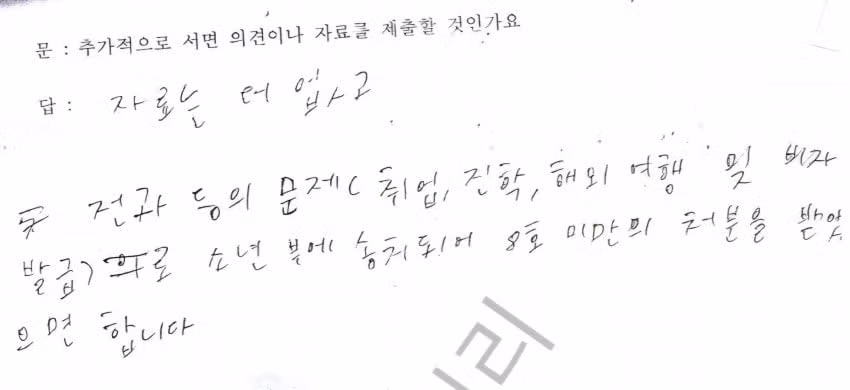 문 : 추가적으로 서면 의견이나 자료를 제출할 것인가요
답 : 자료는 더 없고
전과 등의 문제( 취업, 진학, 해외 여행 및 비자
발급) 로 소년 부에 송치되어 8호 미만의 처분을 받았
으면 합니다
리